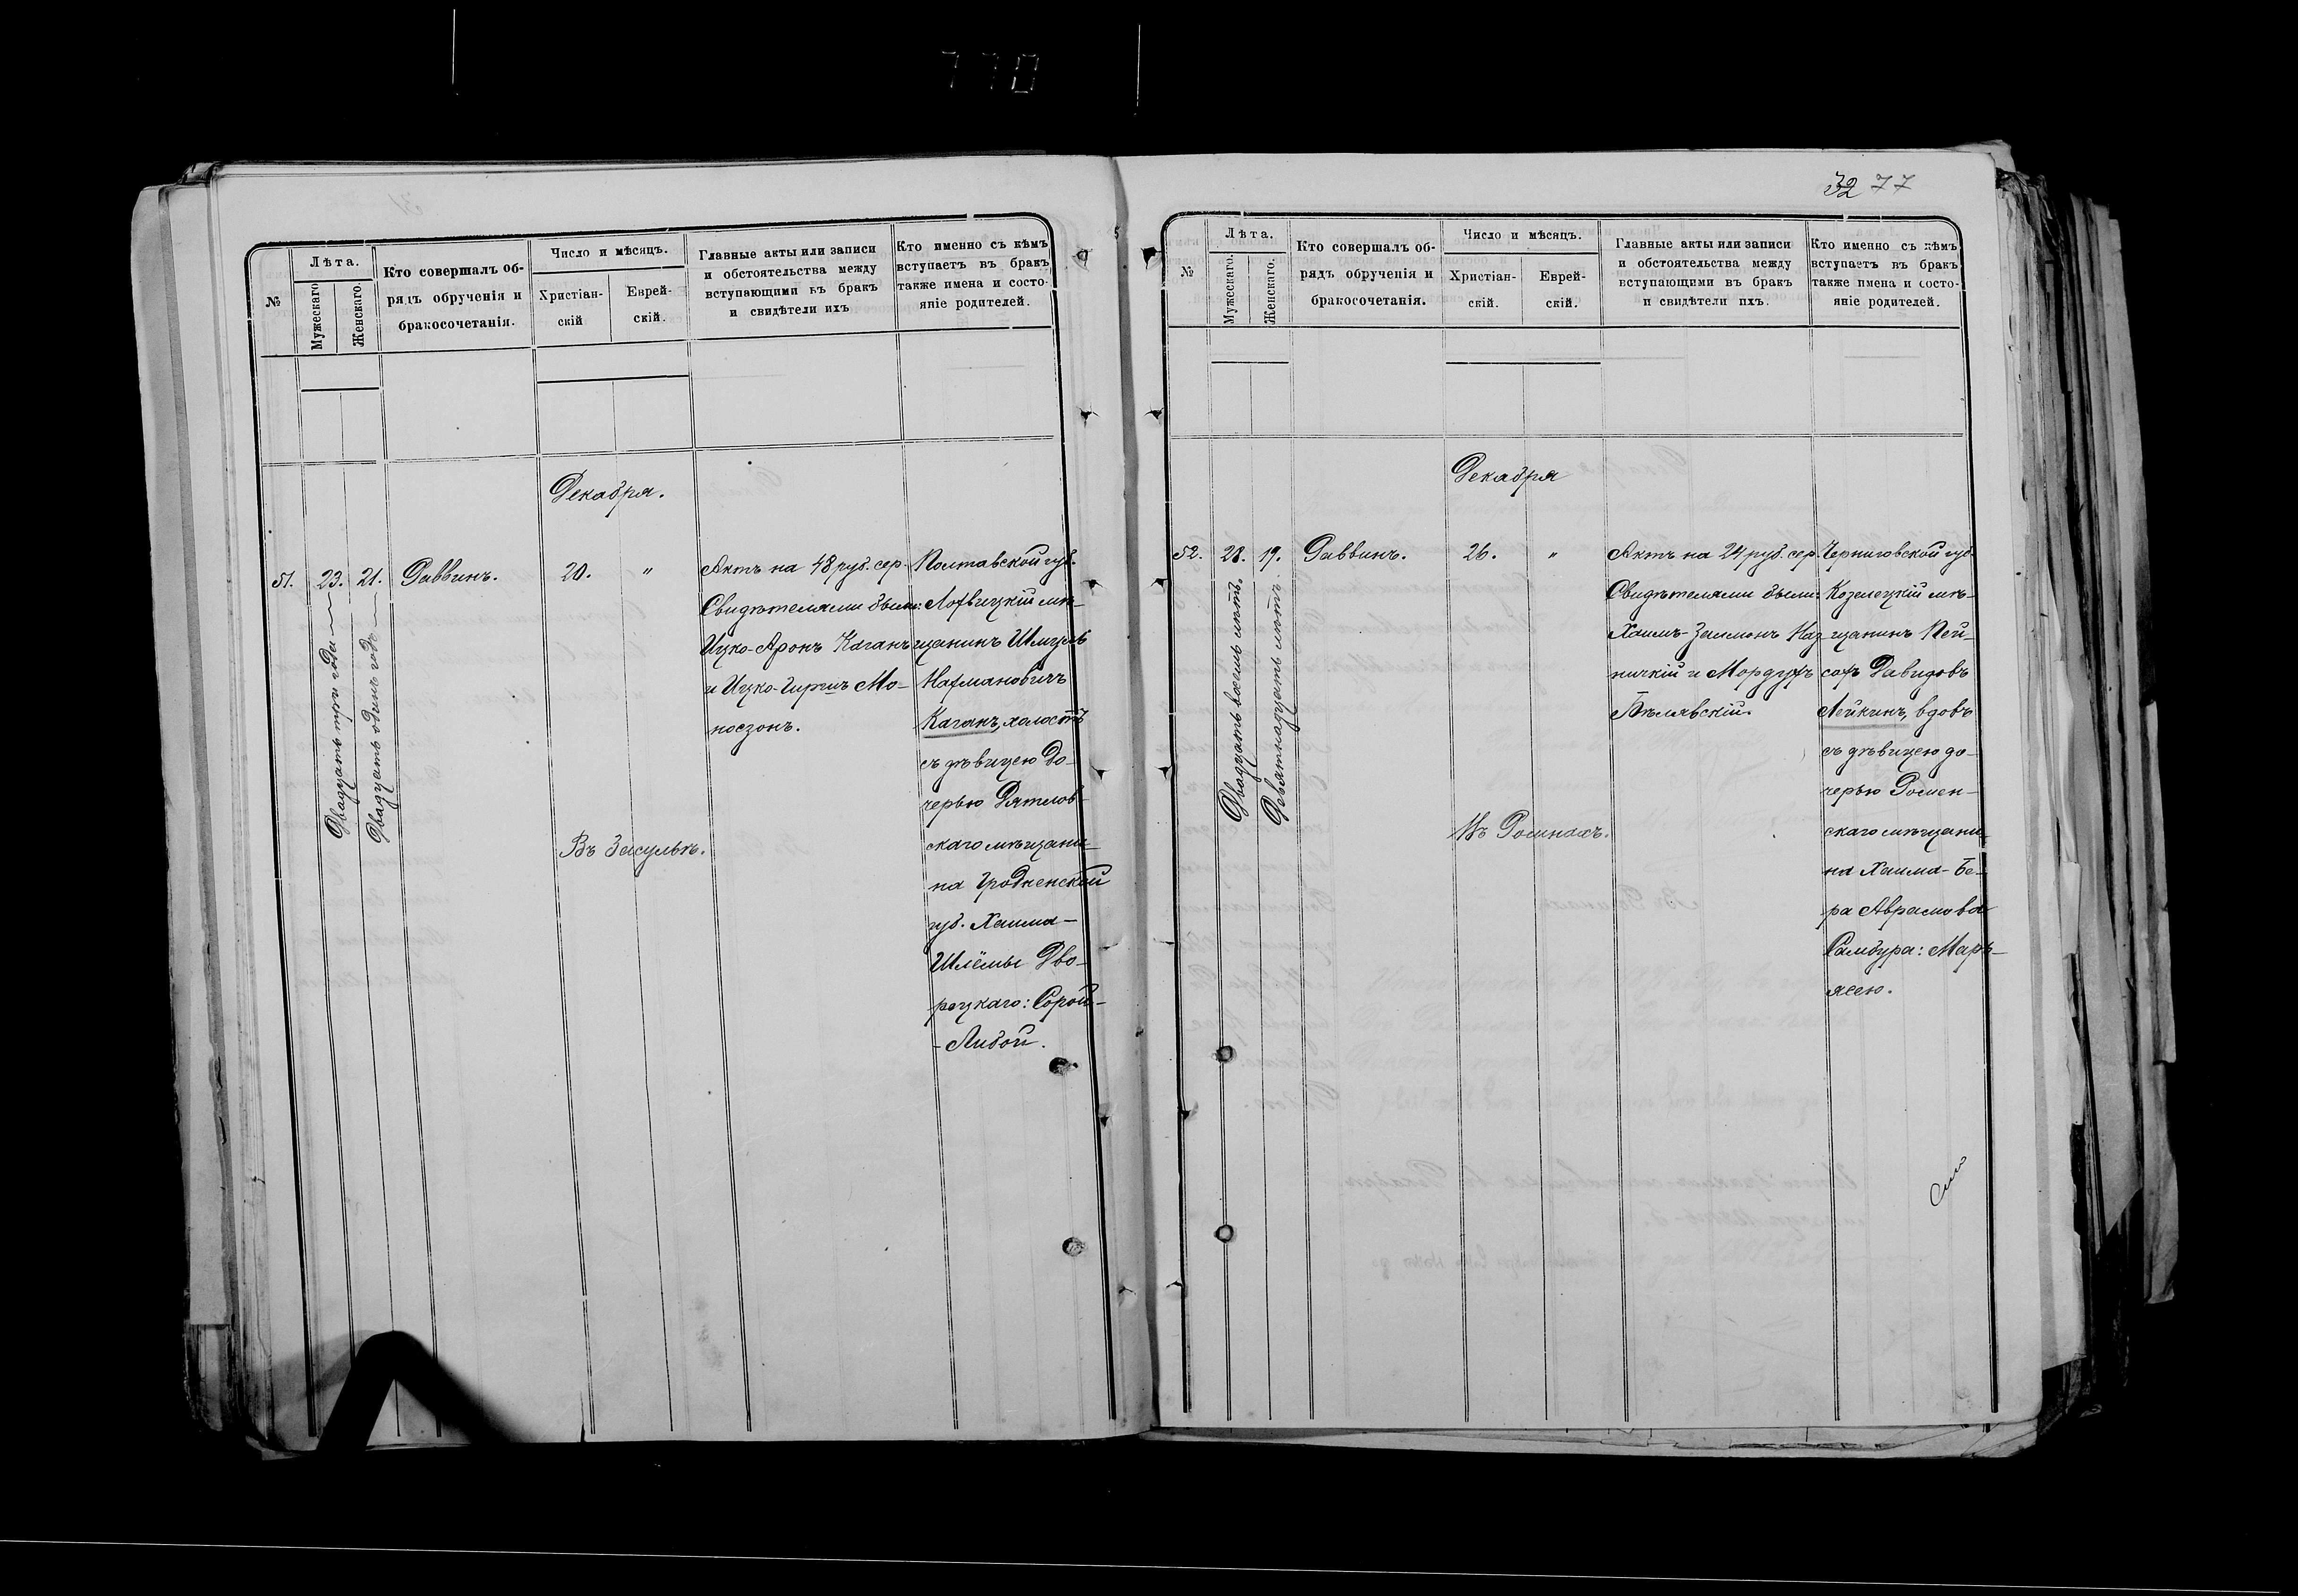 770
№
Лѣта.
Мужескаго.
Женскаго.
Кто совершалъ об-
рядъ обрученія и
бракосочетанія.
Число и мѣсяцъ.
Христіан-
скій
Еврей-
скій.
Главные акты или записи
и обстоятельства между
вступающими въ бракъ
и свидѣтели ихъ
Кто именно съ кѣмъ
вступаетъ въ бракъ
также имена и состо-
яніе родителей.
Декабря.
51.
23.
Двадцать три года
21.
Двадцать одинъ годъ
Раввинъ.
20.
"
Въ Засульѣ.
Актъ на 48 руб. сер.
Свидѣтелями были:
Ицко-Аронъ Каганъ
и Ицко-Гиршъ Мо-
носзонъ.
Полтавской губ.
Лохвицкій мѣ-
щанинъ Шмуль
Нахмановичъ
Каганъ, холостъ
съ дѣвицею до-
черью Дятлов-
скаго мѣщани-
на Гродненской
губ. Хаима-
Шлёмы Дво-
рецкаго: Сорой-
-Либой.
32 77
№
Лѣта.
Мужескаго.
Женскаго.
Кто совершалъ об-
рядъ обрученія и
бракосочетанія.
Число и мѣсяцъ.
Христіан-
скій.
Еврей-
скій.
Главные акты или записи
и обстоятельства между
вступающими въ бракъ
и свидѣтели ихъ.
Кто именно съ кѣмъ
вступаетъ въ бракъ
также имена и состо-
яніе родителей.
Декабря
52.
28.
Двадцать восемь лѣтъ.
19.
Девятнадцать лѣтъ.
Раввинъ.
26.
"
Въ Ромнахъ.
Актъ на 24 руб. сер.
Свидѣтелями были:
Хаимъ-Залманъ Каз-
ничкій и Мордухъ
Бѣлявскій.
Черниговской губ.
Козелецкій мѣ-
щанинъ Пей-
сахъ Давидовъ
Лейкинъ, вдовъ
съ дѣвицею до-
черью Ромен-
скаго мѣщани-
на Хаима-Бе-
ра Аврамова
Самбура: Марь-
ясею.